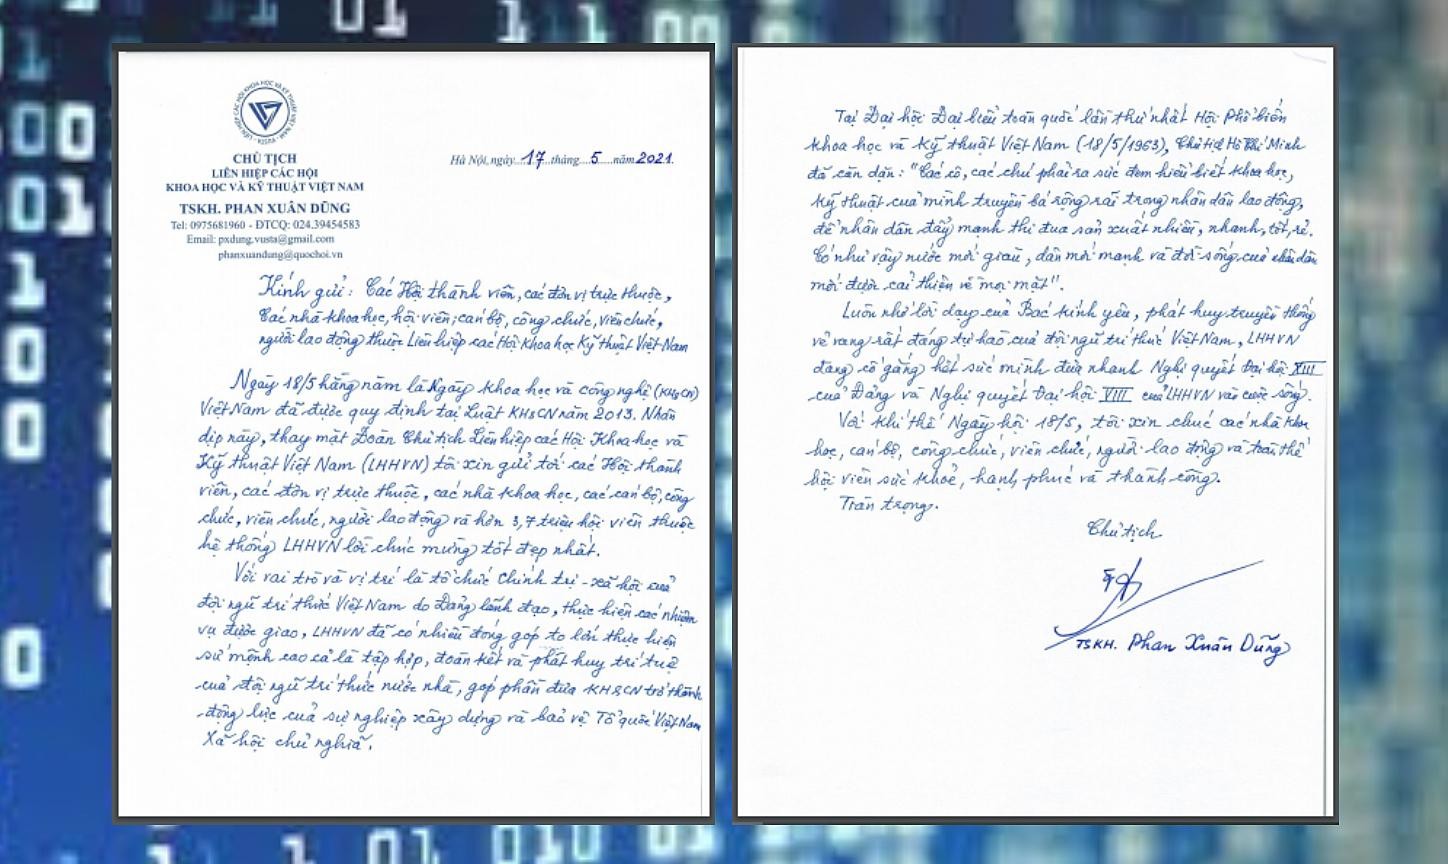 LIÊN HIỆP CÁC HỘI KHOA HỌC VÀ KỸ THUẬT VIỆT NAM - VUSTA
CHỦ TỊCH
LIÊN HIỆP CÁC HỘI
KHOA HỌC VÀ KỸ THUẬT VIỆT NAM
TSKH. PHAN XUÂN DŨNG
Tel: 0975681960 - ĐTCQ: 024.39454583
Email: pxdung.vusta@gmail.com
phanxuandung@quochoi.vn
Hà Nội, ngày...17...tháng...5....năm 2021.
Kính gửi: Các Hội thành viên, các đơn vị trực thuộc,
Các nhà khoa học, hội viên; cán bộ, công chức, viên chức,
người lao động thuộc Liên hiệp các Hội Khoa học Kỹ thuật Việt Nam
Ngày 18/5 hằng năm là Ngày khoa học và công nghệ (KH&CN)
Việt Nam đã được quy định tại Luật KH&CN năm 2013. Nhân
dịp này, thay mặt Đoàn Chủ tịch Liên hiệp các Hội Khoa học và
Kỹ thuật Việt Nam (LHHVN) tôi xin gửi tới các Hội thành
viên, các đơn vị trực thuộc, các nhà khoa học, các cán bộ, công
chức, viên chức, người lao động và hơn 3,7 triệu hội viên thuộc
hệ thống LHHVN lời chúc mừng tốt đẹp nhất.
Với vai trò và vị trí là tổ chức chính trị - xã hội của
đội ngũ trí thức Việt Nam do Đảng lãnh đạo, thực hiện các nhiệm
vụ được giao, LHHVN đã có nhiều đóng góp to lớn thực hiện
sứ mệnh cao cả là tập hợp, đoàn kết và phát huy trí tuệ
của đội ngũ trí thức nước nhà, góp phần đưa KH&CN trở thành
động lực của sự nghiệp xây dựng và bảo vệ Tổ quốc Việt Nam
Xã hội chủ nghĩa.
Tại Đại hội Đại biểu toàn quốc lần thứ nhất Hội Phổ biến
khoa học và Kỹ thuật Việt Nam (18/5/1963), Chủ tịch Hồ Chí Minh
đã căn dặn: "Các cô, các chú phải ra sức đem hiểu biết khoa học,
kỹ thuật của mình truyền bá rộng rãi trong nhân dân lao động,
để nhân dân đẩy mạnh thi đua sản xuất nhiều, nhanh, tốt, rẻ.
Có như vậy nước mới giàu, dân mới mạnh và đời sống của nhân dân
mới được cải thiện về mọi mặt".
Luôn nhớ lời dạy của Bác kính yêu, phát huy truyền thống
vẻ vang rất đáng tự hào của đội ngũ trí thức Việt Nam, LHHVN
đang cố gắng hết sức mình đưa nhanh Nghị quyết Đại hội XIII
của Đảng và Nghị quyết Đại hội VIII của LHHVN vào cuộc sống.
Với khí thế Ngày hội 18/5, tôi xin chúc các nhà khoa
học, cán bộ, công chức, viên chức, người lao động và toàn thể
hội viên sức khoẻ, hạnh phúc và thành công.
Trân trọng.
Chủ tịch
TSKH. Phan Xuân Dũng